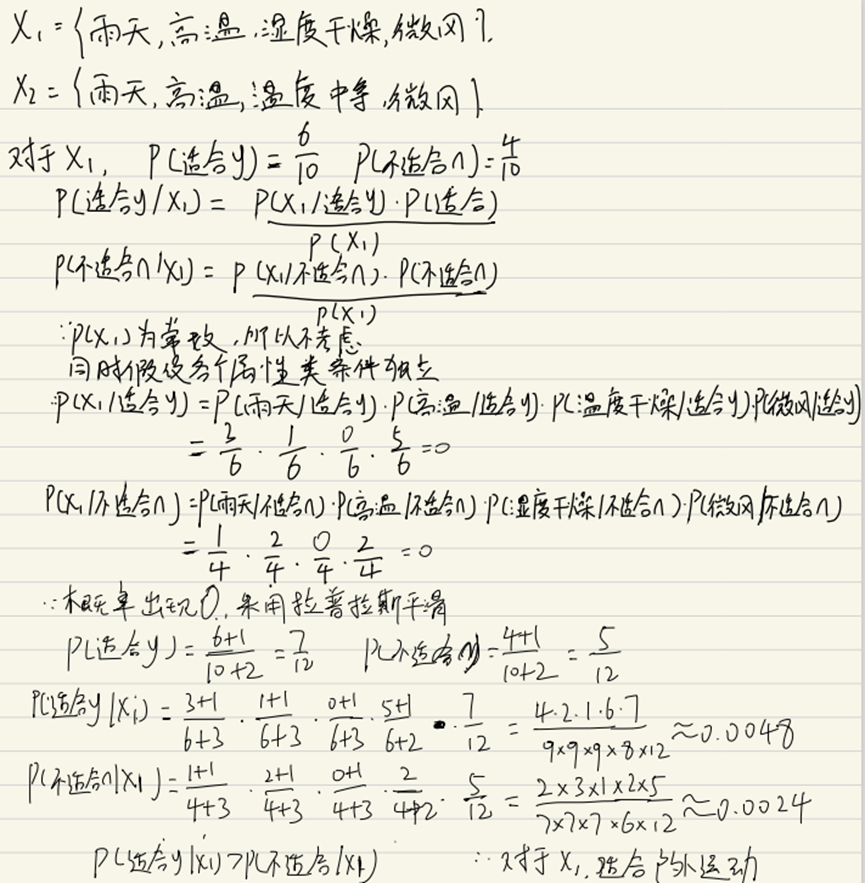 X₁ = {雨天, 高温, 湿度干燥, 微风}.
X₂ = {雨天, 高温, 温度中等, 微风}
对于X₁, P(适合y) = 6/10 P(不适合n) = 4/10
P(适合y/X₁) = P(X₁/适合y)·P(适合) / P(X₁)
P(不适合n/X₁) = P(X₁/不适合n)·P(不适合n) / P(X₁)
∵P(X₁)为常数, 所以不考虑
同时假设各个属性类条件独立
∴P(X₁/适合y) = P(雨天/适合y)·P(高温/适合y)·P(温度干燥/适合y)·P(微风/适合y)
= 3/6 · 1/6 · 0/6 · 5/6 = 0
P(X₁/不适合n) = P(雨天/不适合n)·P(高温/不适合n)·P(湿度干燥/不适合n)·P(微风/不适合n)
= 1/4 · 2/4 · 0/4 · 2/4 = 0
∵概率出现0, 采用拉普拉斯平滑
P(适合y) = 6+1/10+2 = 7/12 P(不适合n) = 4+1/10+2 = 5/12
P(适合y|X₁) = 3+1/6+3 · 1+1/6+3 · 0+1/6+3 · 5+1/6+2 · 7/12 = 4·2·1·6·7/9×9×9×8×12 ≈ 0.0048
P(不适合n|X₁) = 1+1/4+3 · 2+1/4+3 · 0+1/4+3 · 2/4+2 · 5/12 = 2×3×1×2×5/7×7×7×6×12 ≈ 0.0024
P(适合y|X₁) > P(不适合/X₁) ∴对于X₁, 适合户外运动